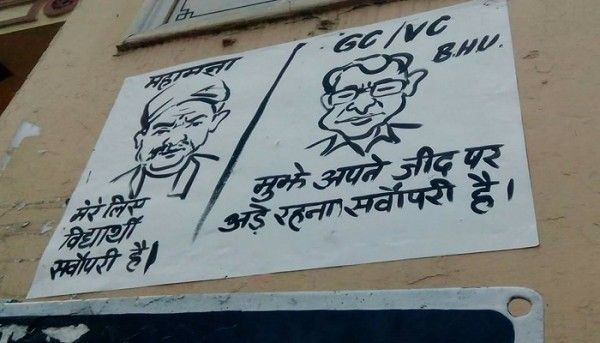 महामना
मेरे लिए
विद्यार्थी
सर्वोपरी है।
GC/VC
B.H.U.
मुझे अपने जीद पर
अड़े रहना सर्वोपरी है।